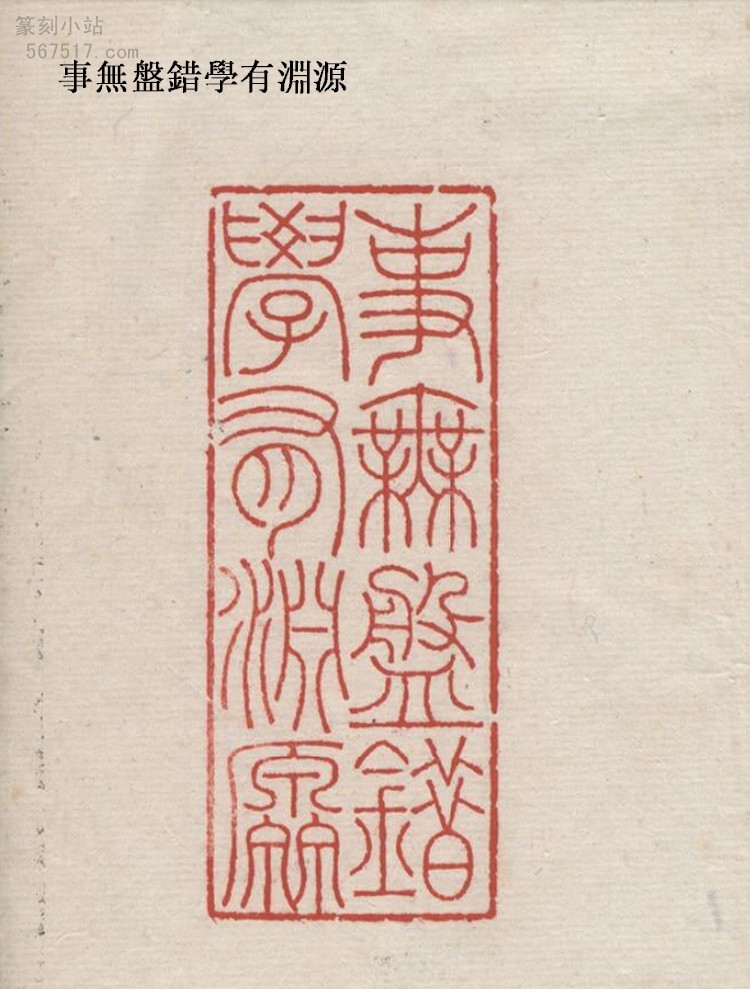 篆刻小站
567517.com
事無盤錯學有淵源
事無盤錯
學有淵源